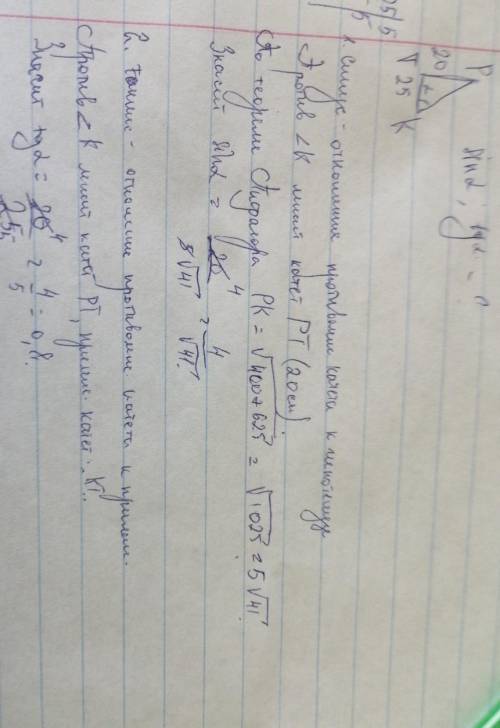 P
20
T 25 K
sinα, tgα = ?
1. Синус - отношение противолеж катета к гипотенузе
Против ∠K лежит катет PT (20см)
По теореме Пифагора PK = √400+625 = √1025 = 5√41
Значит sinα = 20 4 / 5√41 = 4 / √41.
2. Тангенс - отношение противолежа катета к прилеж.
Против ∠K лежит катет PT, прилеж. катет - KT.
Значит tgα = 20 4 / 25 5 = 4 / 5 = 0,8.